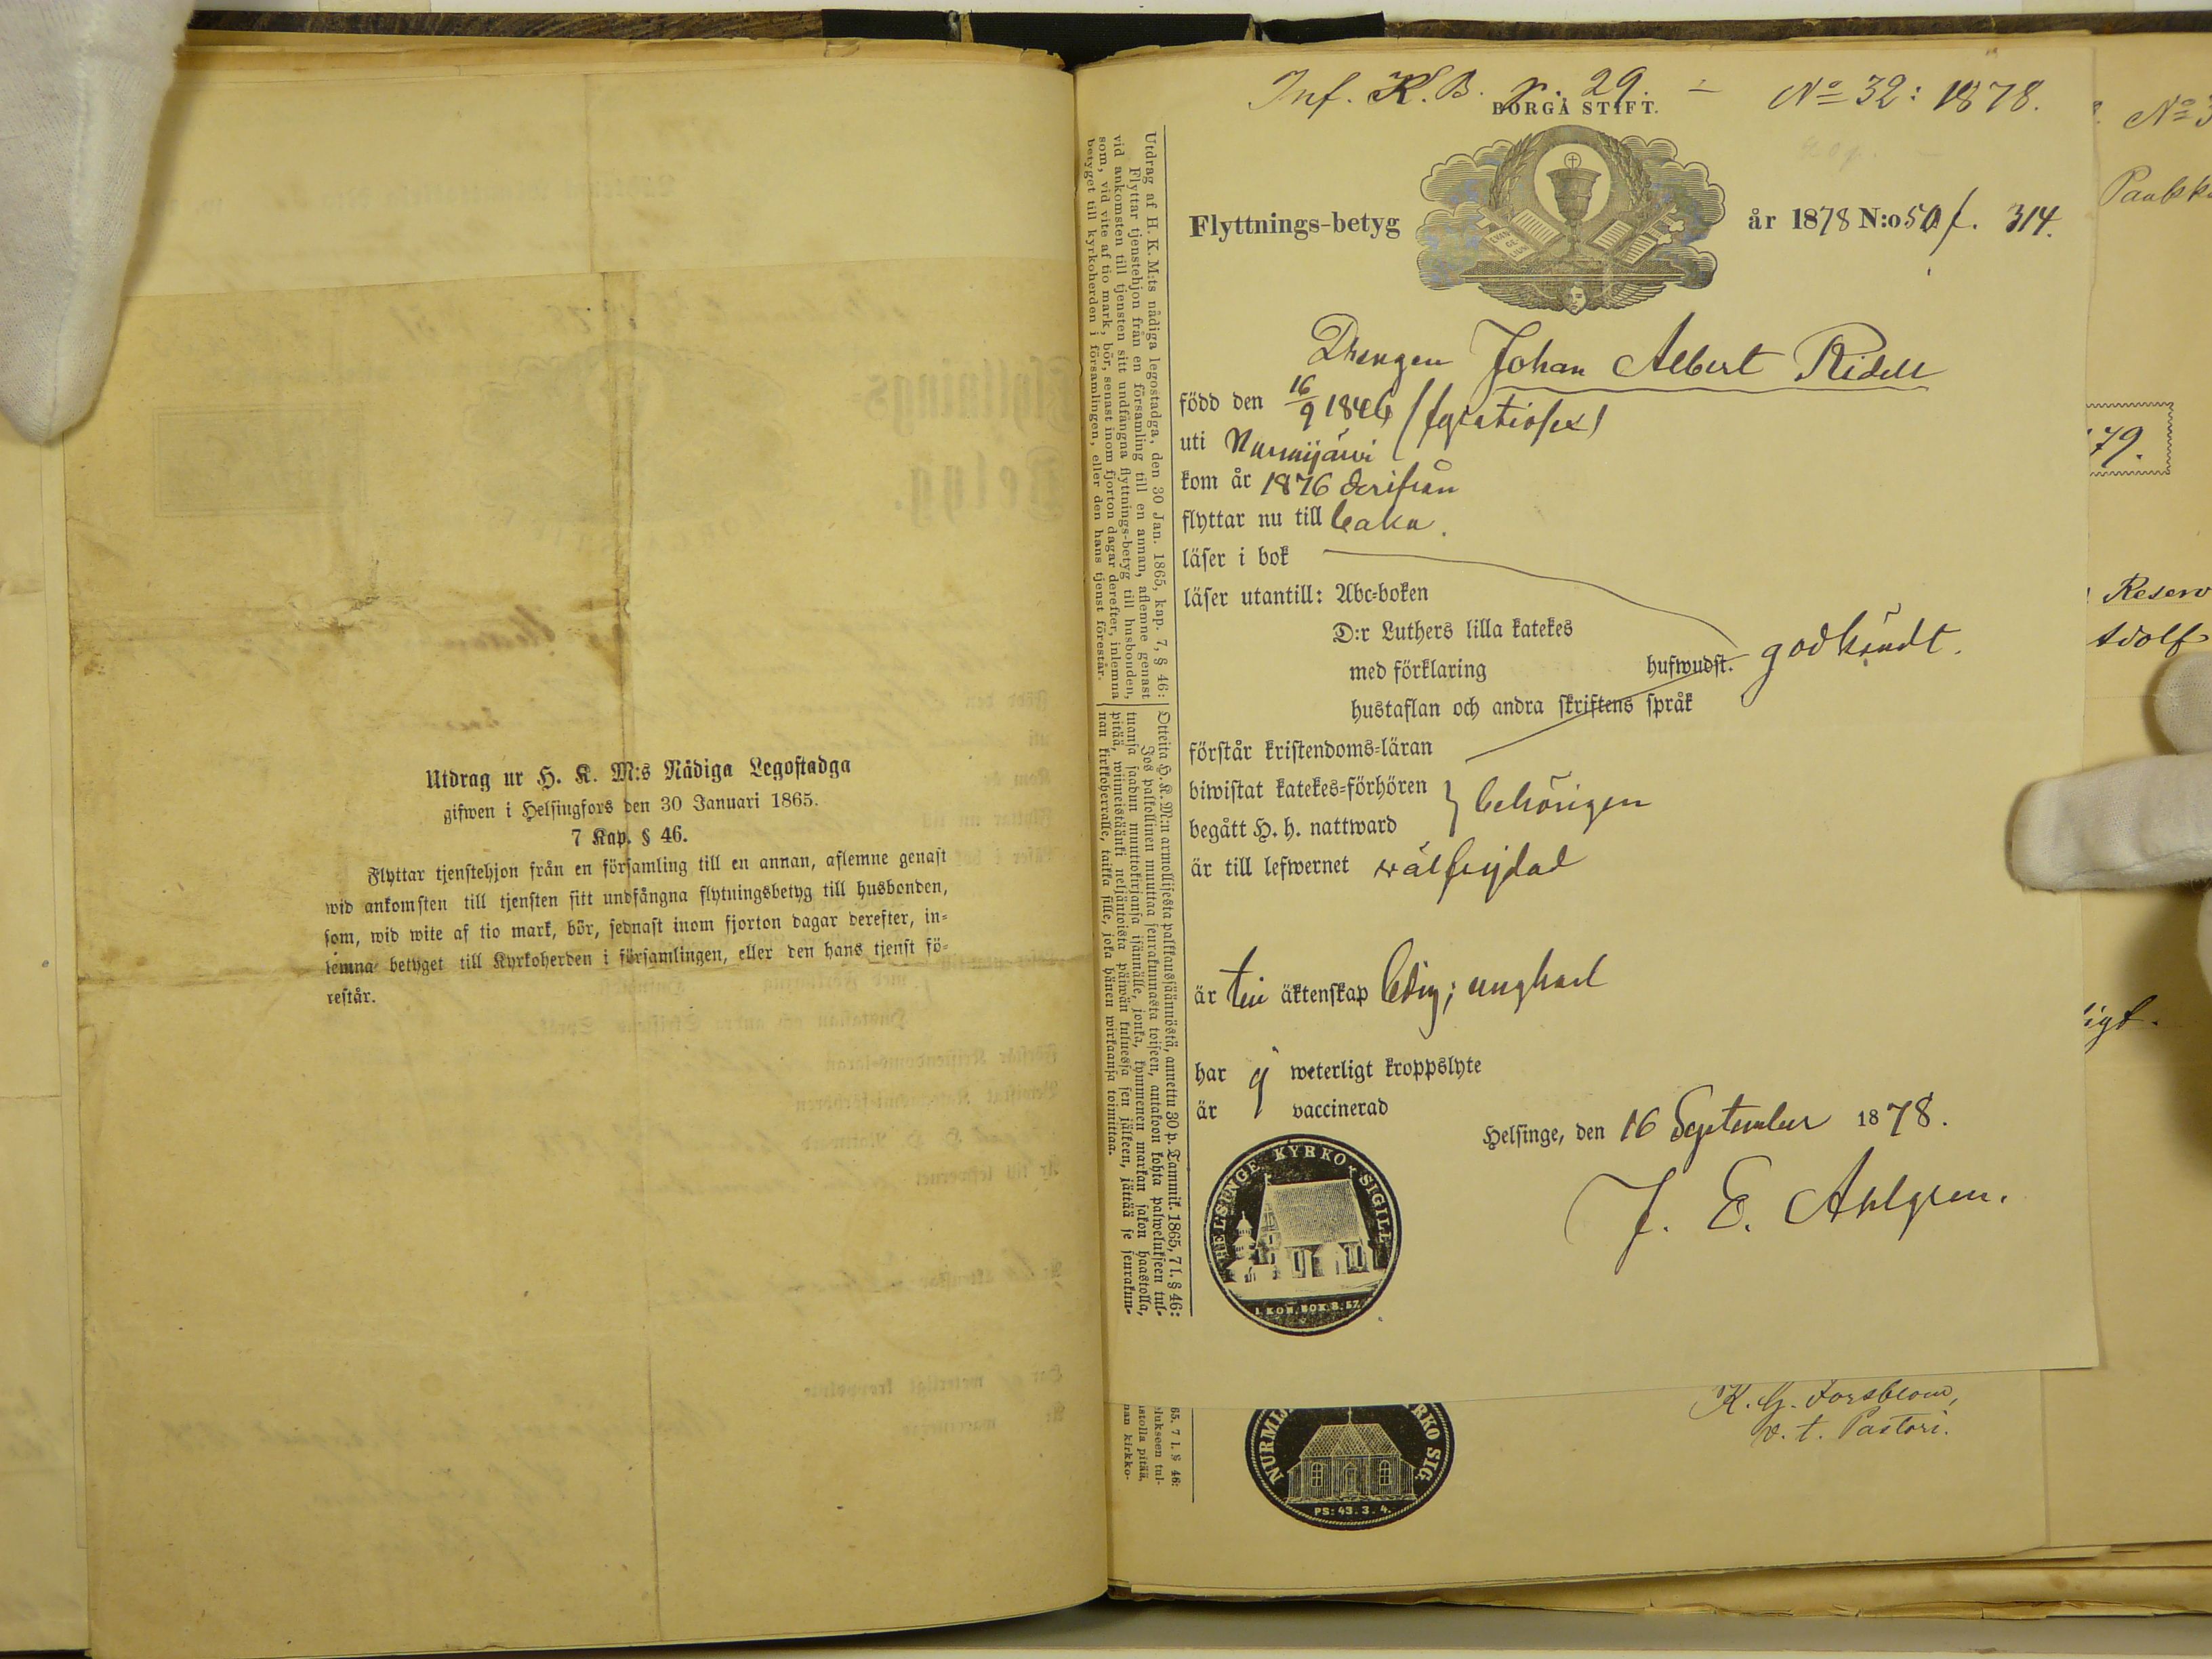 Utdrag ur H. K. M:s Nådiga Legostadga
gifwen i Helsingfors den 30 Januari 1865.
7 Kap. § 46.
Flyttar tjenstehjon från en församling till en annan, aflemne genast
wid ankomsten till tjensten sitt undfångna flytningsbetyg till husbonden,
som, wid wite af tio mark, bör, sednast inom fjorton dagar derefter, in-
lemna betyget till Kyrkoherden i församlingen, eller den hans tjenst fö-
restår.
Inf. K. B. p. 29. — No 32: 1878.
BORGÅ STIFT.
Flyttnings-betyg
år 1878 N:o 50 f. 314.
Drengen Johan Albert Ridell
född den 16/9 1846
uti Nurmijärvi
kom år 1876 derifrån
flyttar nu till
läser i bok
läser utantill: Abc-boken
D:r Luthers lilla katekes
med förklaring hufwudst. godkändt.
hustaflan och andra skriftens språk
förstår kristendoms-läran
biwistat katekes-förhören
begått H. h. nattward } behörigen
är till lefwernet välfrejdad
är till äktenskap ledig; ungkarl
har ej weterligt kroppslyte
är vaccinerad
Helsinge, den 16 September 1878.
J. E. Ahlgren.
HELSINGE KYRKO SIGILL
1. KON. BOK. 8. 57.
Utdrag af H. K. M:ts nådiga legostadga, den 30 Jan. 1865, kap. 7, § 46:
Flyttar tjenstehjon från en församling till en annan, aflemne genast
vid ankomsten till tjensten sitt undfångna flyttnings-betyg till husbonden,
som, vid vite af tio mark, bör, senast inom fjorton dagar derefter, inlemna
betyget till kyrkoherden i församlingen, eller den hans tjenst förestår.
Otteita H. K. M:n armollisesta palkkaussäännöstä, annettu 30 p. Tammik. 1865, 7 l. § 46:
Jos palkollinen muuttaa seurakunnasta toiseen, antakoon kohta palwelukseen tul-
tuansa saadun muuttokirjansa isännälle, jonka, kymmenen markan sakon haastolla,
pitää, wiimeistäänki neljäntoista päiwän kuluessa sen jälkeen, jättää se seurakun-
nan kirkkoherralle, taikka sille, joka hänen wirkaansa toimittaa.
K. G. Forsblom,
v. t. Pastori.
NURMIJ
RKO SIG.
PS: 43. 3. 4.
65. 7 l. § 46:
elukseen tul-
astolla pitää,
nan kirkko-
No 3
79.
Reserv
Adolf
igt.